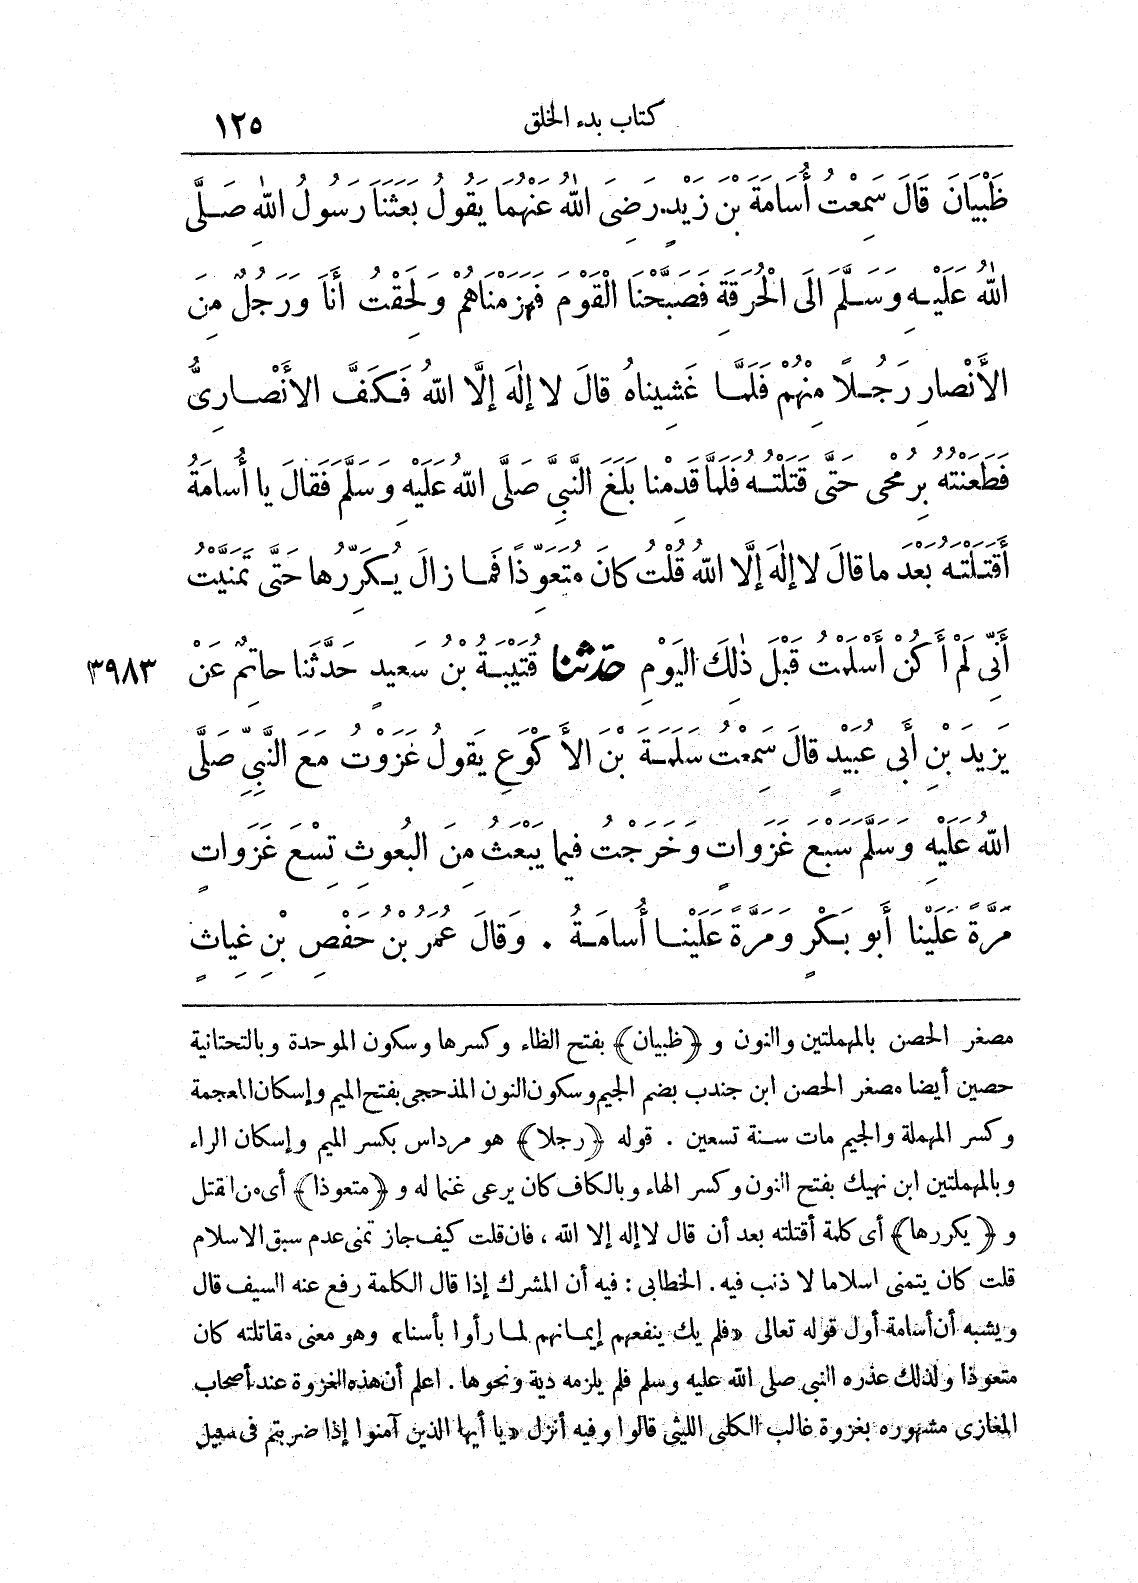 كتاب بدء الخلق
١٢٥
ظَبْيَانَ قَالَ سَمِعْتُ أُسَامَةَ بْنَ زَيْدٍ رَضِىَ اللّٰهُ عَنْهُمَا يَقُولُ بَعَثَنَا رَسُولُ اللّٰهِ صَلَّى
اللّٰهُ عَلَيْهِ وَسَلَّمَ الَى الْحُرَقَةِ فَصَبَّحْنَا الْقَوْمَ فَهَزَمْنَاهُمْ وَلَحِقْتُ أَنَا وَرَجُلٌ مِنَ
الأَنْصارِ رَجُلاً مِنْهُمْ فَلَمَّا غَشِيناهُ قالَ لا إِلٰهَ إِلَّا اللّٰهُ فَكَفَّ الأَنْصارِىُّ
فَطَعَنْتُهُ بِرُمْحِى حَتَّى قَتَلْتُهُ فَلَمَّا قَدِمْنا بَلَغَ النَّبِىَّ صَلَّى اللّٰهُ عَلَيْهِ وَسَلَّمَ فَقالَ يا أُسامَةُ
أَقَتَلْتَهُ بَعْدَ ما قالَ لا إِلٰهَ إِلَّا اللّٰهُ قُلْتُ كانَ مُتَعَوِّذًا فَما زالَ يُكَرِّرُها حَتَّى تَمَنَّيْتُ
أَنِّى لَمْ أَكُنْ أَسْلَمْتُ قَبْلَ ذٰلِكَ اليَوْمِ حدّثنا قُتَيْبَةُ بْنُ سَعِيدٍ حَدَّثَنا حاتِمٌ عَنْ
٣٩٨٣
يَزِيدَ بْنِ أَبِى عُبَيْدٍ قالَ سَمِعْتُ سَلَمَةَ بْنَ الأَكْوَعِ يَقُولُ غَزَوْتُ مَعَ النَّبِىِّ صَلَّى
اللّٰهُ عَلَيْهِ وَسَلَّمَ سَبْعَ غَزَواتٍ وَخَرَجْتُ فِيما يَبْعَثُ مِنَ البُعُوثِ تِسْعَ غَزَواتٍ
مَرَّةً عَلَيْنا أَبو بَكْرٍ وَمَرَّةً عَلَيْنا أُسامَةُ . وَقالَ عُمَرُ بْنُ حَفْصِ بْنِ غِياثٍ
مصغر الحصن بالمهملتين والنون و ﴿ظبيان﴾ بفتح الظاء وكسرها وسكون الموحدة وبالتحتانية
حصين أيضا مصغر الحصن ابن جندب بضم الجيم وسكون النون المذحجى بفتح الميم وإسكان المعجمة
وكسر المهملة والجيم مات سنة تسعين . قوله ﴿رجلا﴾ هو مرداس بكسر الميم وإسكان الراء
وبالمهملتين ابن نهيك بفتح النون وكسر الهاء وبالكاف كان يرعى غنما له و ﴿متعوذا﴾ أى من القتل
و ﴿يكررها﴾ أى كلمة أقتلته بعد أن قال لا إله إلا الله ، فان قلت كيف جاز تمنى عدم سبق الاسلام
قلت كان يتمنى اسلاما لا ذنب فيه . الخطابى : فيه أن المشرك إذا قال الكلمة رفع عنه السيف قال
ويشبه أن أسامة أول قوله تعالى «فلم يك ينفعهم إيمانهم لما رأوا بأسنا» وهو معنى مقاتلته كان
متعوذا ولذلك عذره النبى صلى الله عليه وسلم فلم يلزمه دية ونحوها . اعلم أن هذه الغزوة عند أصحاب
المغازى مشهوره بغزوة غالب الكلبى الليثى قالوا وفيه أنزل «يا أيها الذين آمنوا إذا ضربتم فى سبيل